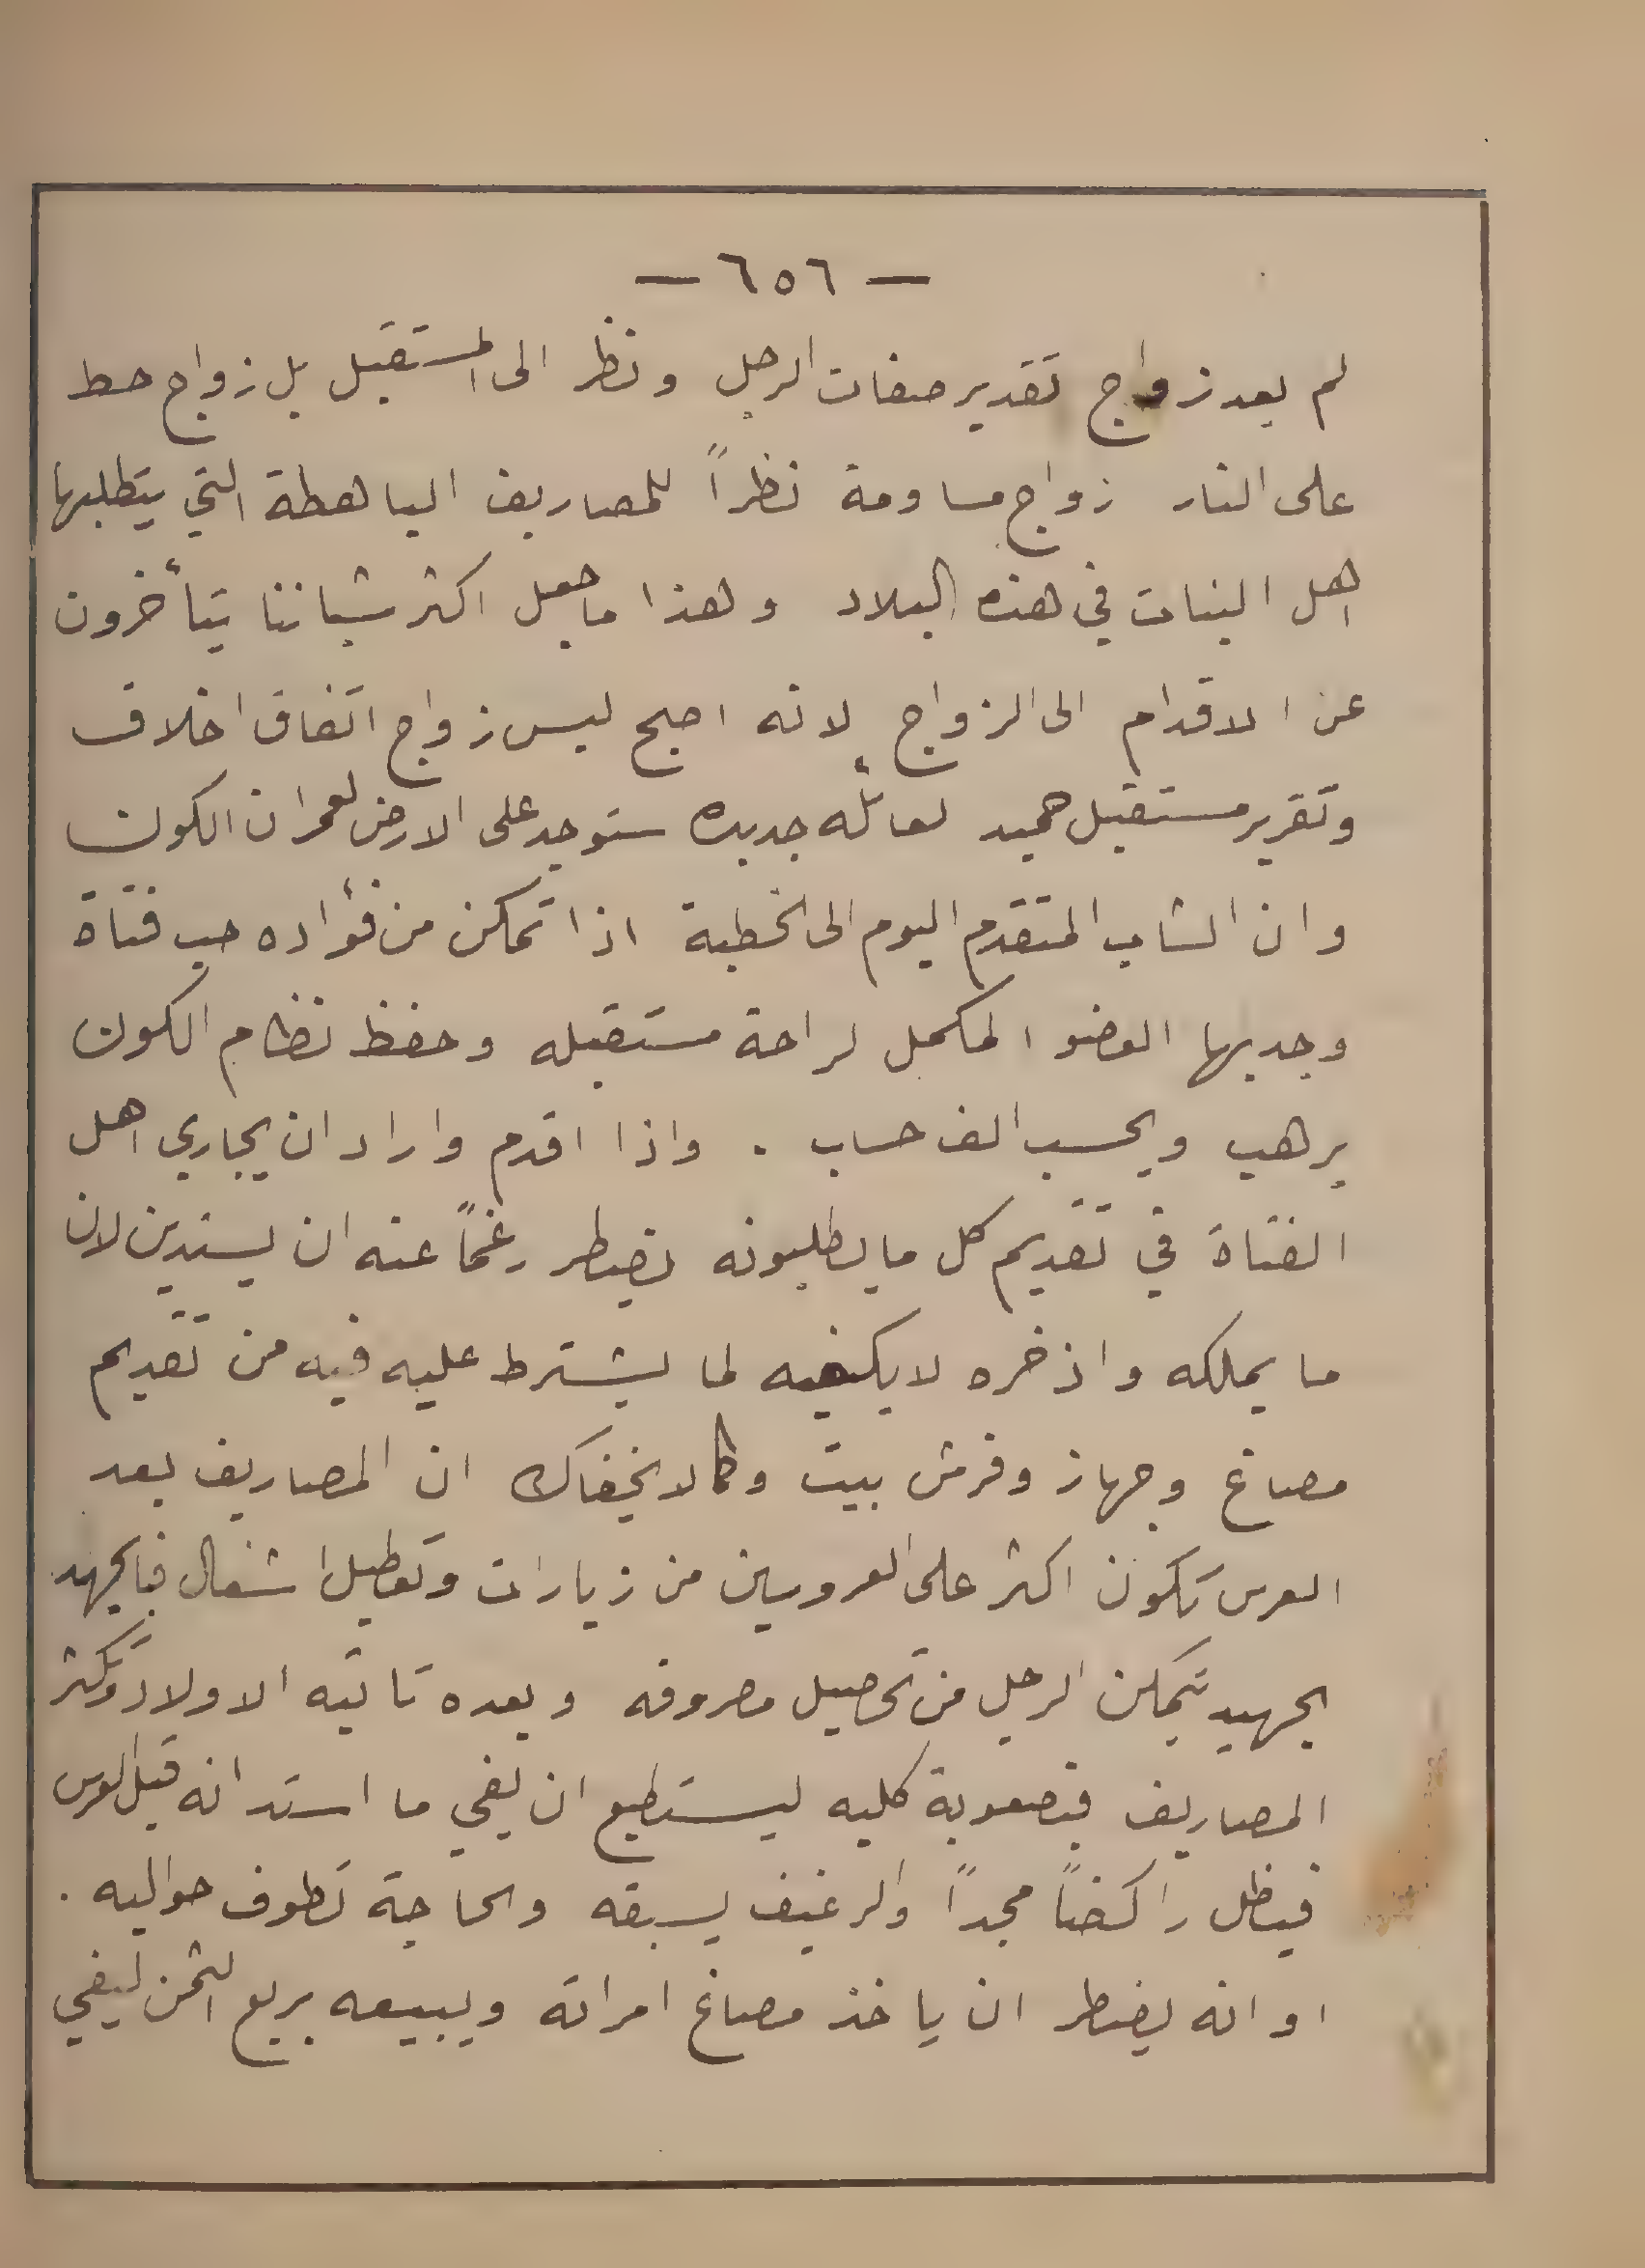 — ٦٥٦ —
لم يعد زواج تقدير صفات الرجل ونظر الى المستقبل بل زواج حط
على النار زواج مساومة نظراً للمصاريف الباهظة التي يتطلبها
اهل البنات في هذه البلاد وهذا ما جعل اكثر شباننا يتأخرون
عن الاقدام الى الزواج لانه اصبح ليس زواج اتفاق اخلاق
وتقرير مستقبل حميد لعائله جديده ستوجد على الارض لعمران الكون
وان الشاب المتقدم اليوم الى الخطبة اذا تمكن من فؤاده حب فتاة
وجد بها العضو المكمل لراحة مستقبله وحفظ نظام الكون
يرهب ويحسب الف حساب . واذا اقدم واراد ان يجاري اهل
الفتاة في تقديم كل ما يطلبونه يضطر رغماً عنه ان يستدين لان
ما يملكه واذخره لا يكفيه لما يشترط عليه فيه من تقديم
مصاغ وجهاز وفرش بيت وكما لا يخفاك ان المصاريف بعد
العرس تكون اكثر على العروسين من زيارات وتعطيل اشغال فبالجهد
الجهيد يتمكن الرجل من تحصيل مصروفه وبعده تاتيه الاولاد وتكثر
المصاريف فبصعوبة كليه ليستطيع ان يفي ما استدانه قبل العرس
فيظل راكضاً مجداً والرغيف يسبقه والحاجة تطوف حواليه .
او انه يضطر ان ياخذ مصاغ امراته ويبيعه بربع الثمن ليفي